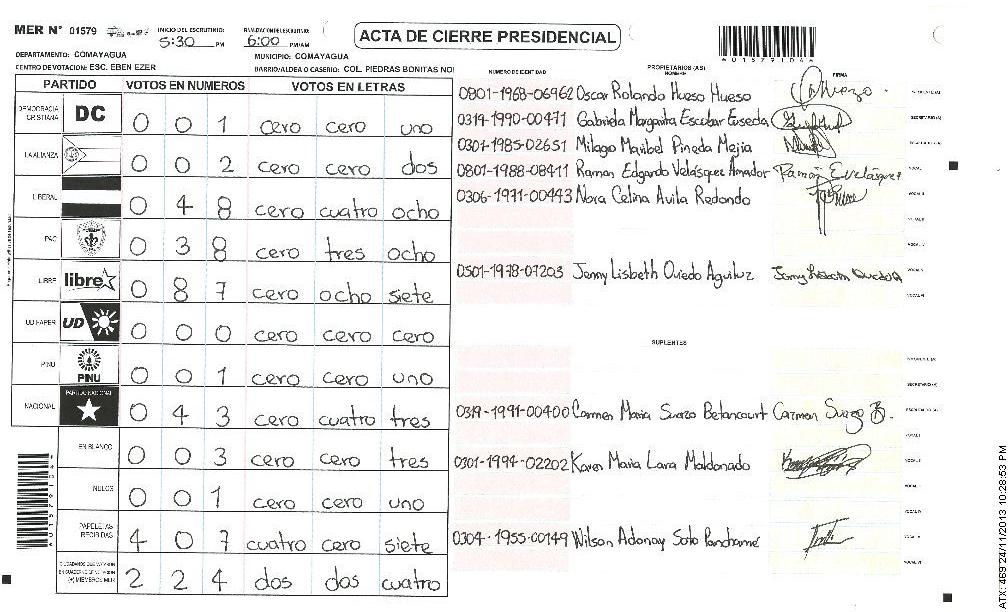 MER N° 01579 INICIO DEL ESCRUTINIO: 5:30 PM FINALIZACION DEL ESCRUTINIO: 6:00 PM/AM ACTA DE CIERRE PRESIDENCIAL
DEPARTAMENTO: COMAYAGUA MUNICIPIO: COMAYAGUA
CENTRO DE VOTACION: ESC. EBEN EZER BARRIO/ALDEA O CASERIO: COL. PIEDRAS BONITAS NO
PARTIDO VOTOS EN NUMEROS VOTOS EN LETRAS
DEMOCRACIA CRISTIANA DC 0 0 1 cero cero uno
LA ALIANZA 0 0 2 cero cero dos
LIBERAL 0 4 8 cero cuatro ocho
PAC 0 3 8 cero tres ocho
LIBRE libre 0 8 7 cero ocho siete
UD FAPER UD 0 0 0 cero cero cero
PINU PINU 0 0 1 cero cero uno
NACIONAL PARTIDO NACIONAL 0 4 3 cero cuatro tres
EN BLANCO 0 0 3 cero cero tres
NULOS 0 0 1 cero cero uno
PAPELETAS RECIBIDAS 4 0 7 cuatro cero siete
CIUDADANOS QUE VOTARON EN CUADERNO DE VOTACION (+) MIEMBROS MER 2 2 4 dos dos cuatro
NUMERO DE IDENTIDAD PROPIETARIOS (AS) NOMBRE FIRMA
0801-1968-06962 Oscar Rolando Hueso Hueso
0319-1990-00471 Gabriela Margarita Escobar Euseda
0301-1985-02651 Milago Maribel Pineda Mejia
0801-1988-08411 Ramon Edgardo Velásquez Amador Ramón E Velásquez
0306-1971-00443 Nora Celina Avila Redondo
0501-1978-07203 Jenny Lisbeth Oviedo Aguiluz
SUPLENTES
0319-1991-00400 Carmen Maria Suazo Betancourt Carmen Suazo B.
0301-1994-02202 Karen Maria Lara Maldonado
0304-1955-00149 Wilson Adonay Soto Panchamé
ATX: 469 24/11/2013 10:28:53 PM